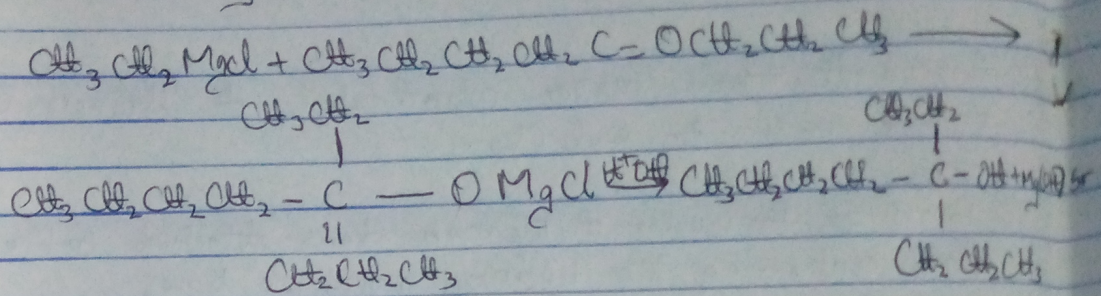 CH3 CH2 MgCl + CH3 CH2 CH2 CH2 C = OCH2 CH2 CH3 ⟶
CH3 CH2 CH3 CH2
| |
CH3 CH2 CH2 CH2 - C — O MgCl H+ OH CH3 CH2 CH2 CH2 - C - OH +
|| |
CH2 CH2 CH3 CH2 CH2 CH3